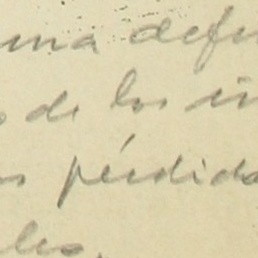 una defen
o de los in
os pérdida
les.